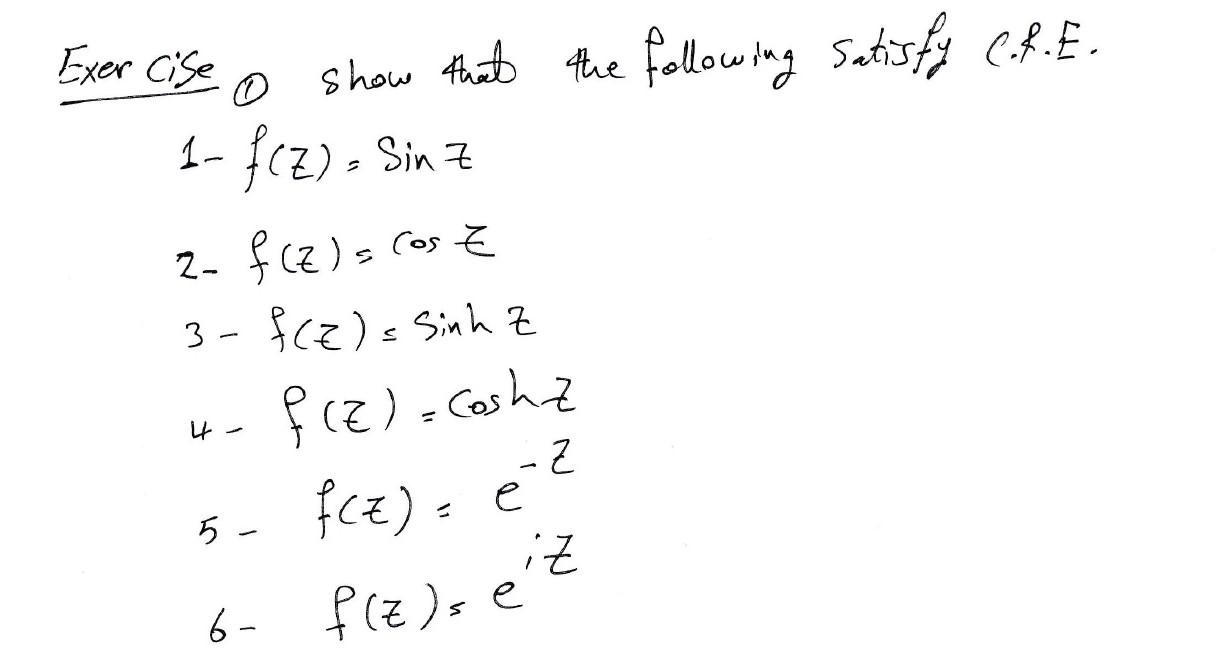 Exercise ① show that the following satisfy C.R.E.
1- f(z) = Sin z
2- f(z) = Cos z
3- f(z) = Sinh z
4- f(z) = Cosh z
5- f(z) = e^{-z}
6- f(z) = e^{iz}